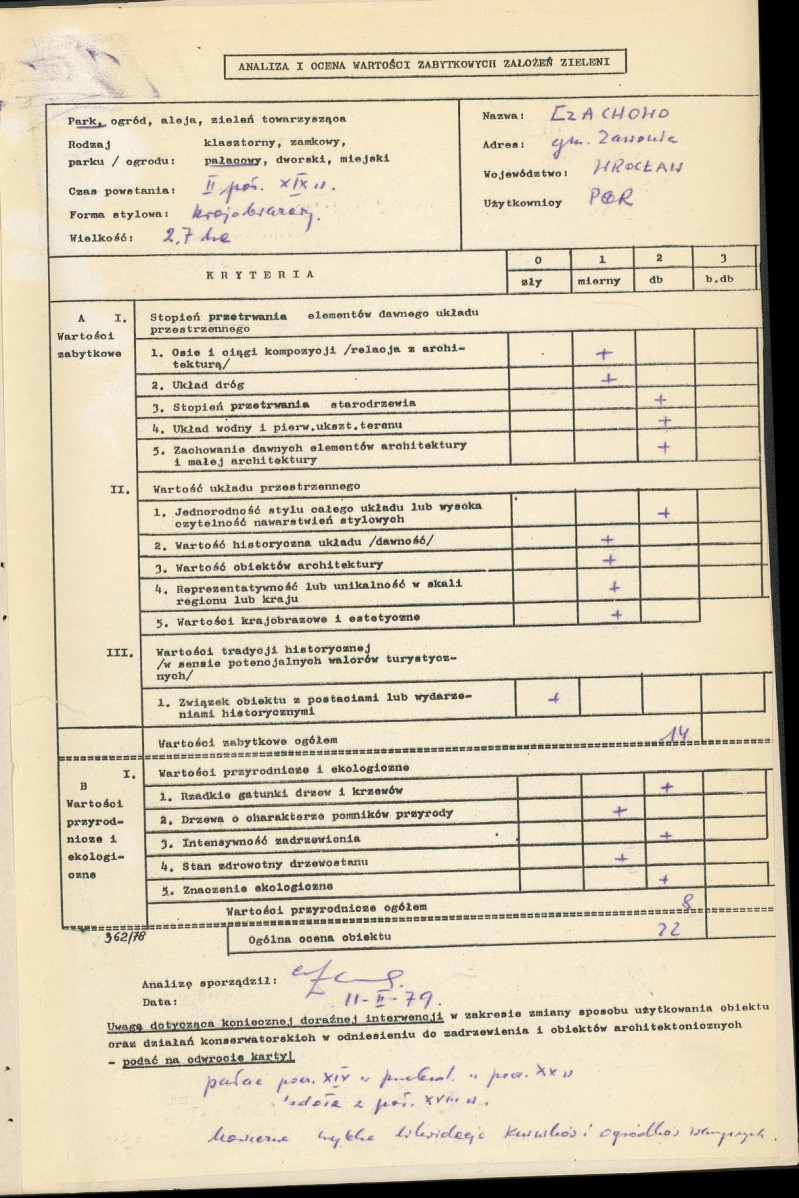 ANALIZA I OCENA WARTOŚCI ZABYTKOWYCH ZAŁOŻEŃ ZIELENI
Park, ogród, aleja, zieleń towarzysząca
Rodzaj klasztorny, zamkowy,
parku / ogrodu: pałacowy, dworski, miejski
Czas powstania: II poł. XIX w.
Forma stylowa: krajobrazowy
Wielkość: 2,7 ha
Nazwa: CZACHOWO
Adres: gm. Zawonia
Województwo: WROCŁAW
Użytkownicy PGR
KRYTERIA
0 1 2 3
zły mierny db b.db
A I. Stopień przetrwania elementów dawnego układu
Wartości przestrzennego
zabytkowe
1. Osie i ciągi kompozycji /relacja z archi- +
tekturą/
2. Układ dróg +
3. Stopień przetrwania starodrzewia +
4. Układ wodny i pierw.ukszt.terenu +
5. Zachowanie dawnych elementów architektury +
i małej architektury
II. Wartość układu przestrzennego
1. Jednorodność stylu całego układu lub wysoka +
czytelność nawarstwień stylowych
2. Wartość historyczna układu /dawność/ +
3. Wartość obiektów architektury +
4. Reprezentatywność lub unikalność w skali +
regionu lub kraju
5. Wartości krajobrazowe i estetyczne +
III. Wartości tradycji historycznej
/w sensie potencjalnych walorów turystycz-
nych/
1. Związek obiektu z postaciami lub wydarze- +
niami historycznymi
Wartości zabytkowe ogółem 14
B I. Wartości przyrodnicze i ekologiczne
Wartości
przyrod-
nicze i
ekologi-
czne
1. Rzadkie gatunki drzew i krzewów +
2. Drzewa o charakterze pomników przyrody +
3. Intensywność zadrzewienia +
4. Stan zdrowotny drzewostanu +
5. Znaczenie ekologiczne +
Wartości przyrodnicze ogółem 8
362/78 Ogólna ocena obiektu 22
Analizę sporządził:
Data: 11-II-79.
Uwagę dotyczącą koniecznej doraźnej interwencji w zakresie zmiany sposobu użytkowania obiektu
oraz działań konserwatorskich w odniesieniu do zadrzewienia i obiektów architektonicznych
- podać na odwrocie karty!
pałac pocz. XIX w przebud. w pocz. XX w
z poł. XVIII w.
likwidacja kurników i ogródków